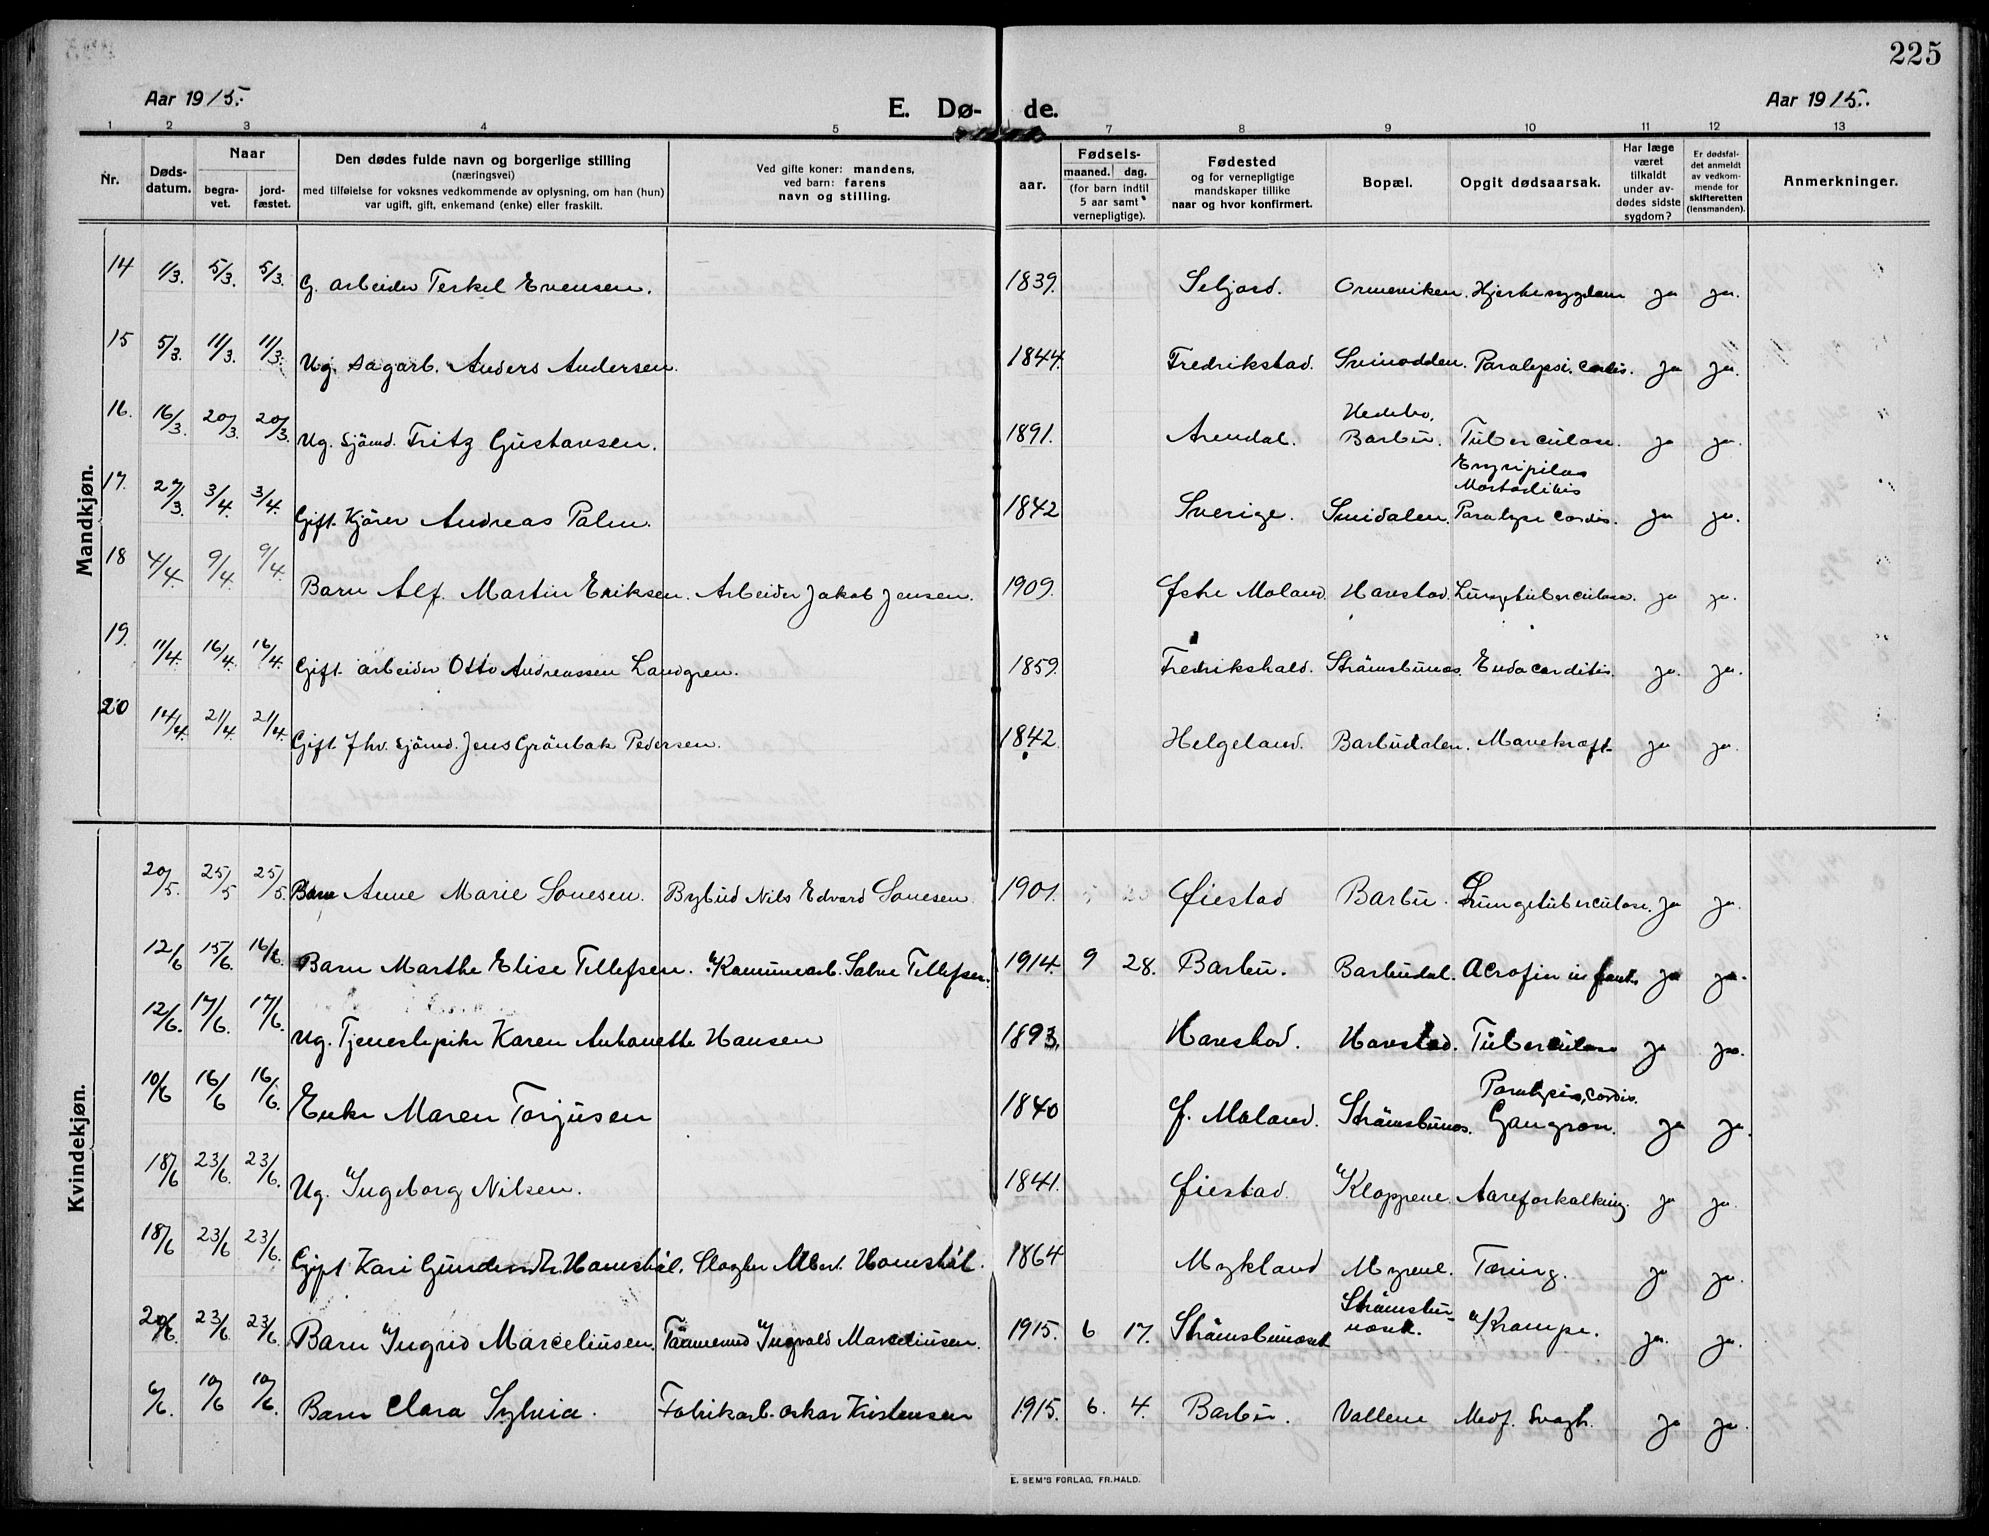 225
Aar 1915.
E. Dø- de.
Aar 1915.
1 2 3 4 5 7 8 9 10 11 12 13
Nr.
Døds-
datum.
Naar
begra-
vet.
jord-
fæstet.
Den dødes fulde navn og borgerlige stilling
(næringsvei)
med tilføielse for voksnes vedkommende av oplysning, om han (hun)
var ugift, gift, enkemand (enke) eller fraskilt.
Ved gifte koner: mandens,
ved barn: farens
navn og stilling.
aar.
Fødsels-
maaned. dag.
(for barn indtil
5 aar samt
vernepligtige).
Fødested
og for vernepligtige
mandskaper tillike
naar og hvor konfirmert.
Bopæl.
Opgit dødsaarsak.
Har læge
været
tilkaldt
under av-
dødes sidste
sygdom?
Er dødsfal-
det anmeldt
av vedkom-
mende for
skifteretten
(lensmanden).
Anmerkninger.
Mandkjøn.
14 1/3. 5/3. 5/3. G. arbeider Terkel Evensen. 1839. Seljord. Ormeviken. Hjertesygdom ja ja.
15 5/3. 11/3. 11/3. Ug. Sagarb. Anders Andersen. 1844. Fredrikstad. Svinodden. Paralysi. cordis. ja ja.
Hedebo,
16. 16/3. 20/3. 20/3. Ug. Sjömd. Fritz Gustavsen. 1891. Arendal. Barbu. Tuberculose. ja ja.
17. 27/3. 3/4. 3/4. Gift. Kjörer Andreas Palm. 1842 Sverige. Paralyse cordis. ja ja.
18 4/4. 9/4. 9/4. Barn Alf. Martin Eriksen. Arbeider Jakob Jensen. 1909. Østre Moland. Havestad. Lungetuberculose. ja ja.
19. 11/4. 16/4. 16/4. Gift. arbeider Otto Andreassen Landgren. 1859. Fredrikshald. Strömsbunæs. Endocarditis. ja. ja.
20 14/4. 21/4. 21/4. Gift. fhv. sjömd. Jens Grönbak Pedersen. 1842. Helgeland. Barbudalen. Mavekræft ja ja.
Kvindekjøn.
20/5. 25/5 25/5. Barn Anne Marie Sonesen. Bybud Nils Edvard Sonesen 1901. Øiestad Barbu. Lungetuberculose. ja ja.
12/6 15/6. 16/6. Barn Marthe Elise Tellefsen. Kommunearb. Salve Tellefsen. 1914. 9 28. Barbu. Barbudal. ja ja.
12/6. 17/6. 17/6. Ug. Tjenestepike Karen Antonette Hansen 1893. Havestad. Havstad. Tuberculose ja ja.
Paralysis, cordis.
10/6 16/6 16/6. Enke Maren Torjusen 1840 Ø. Moland. Strömsbunæs. Gangræn. ja ja.
18/6 23/6. 23/6. Ug. Ingeborg Nilsen. 1841. Øiestad. Kloppene. Aareforkalkning. ja ja.
18/6 23/6 23/6. Gift Kari Gundersdtr. Slagter Albert 1864 Mykland Myrene. Tæring. ja ja.
Strömsbu-
20/6. 23/6 23/6. Barn Ingrid Marceliusen. Ingvald Marceliusen. 1915. 6 17. Strömsbunæset næset. Krampe. ja. ja.
6/6. 10/6 10/6. Barn Clara Sylvia. Fabrikarb. Oskar Kristensen 1915. 6. 4. Barbu. Vallene Medf. Svagh. ja ja.
E. SEM'S FORLAG, FR.HALD.